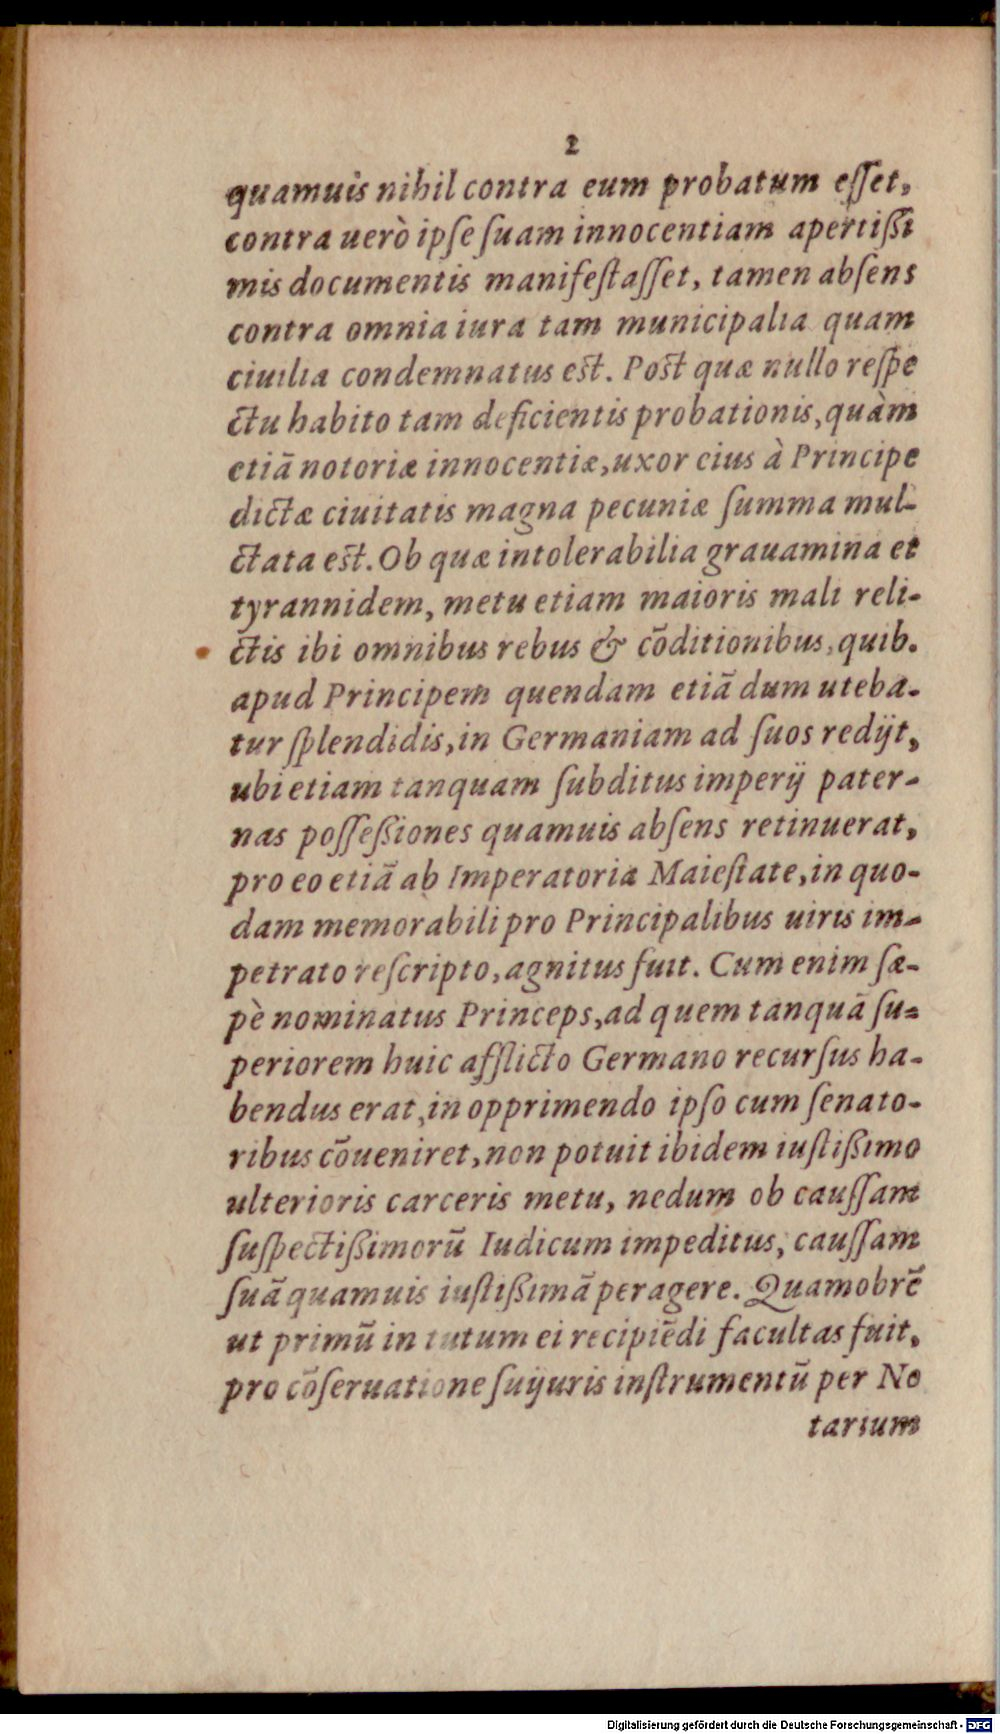 2
quamuis nihil contra eum probatum eſſet,
contra uerò ipſe ſuam innocentiam apertißi
mis documentis manifeſtaſſet, tamen abſens
contra omnia iura tam municipalia quam
ciuilia condemnatus eſt. Poſt quæ nullo reſpe
ctu habito tam deficientis probationis, quàm
etiã notoriæ innocentiæ, uxor eius à Principe
dictæ ciuitatis magna pecuniæ ſumma mul-
ctata eſt. Ob quæ intolerabilia grauamina et
tyrannidem, metu etiam maioris mali reli-
ctis ibi omnibus rebus & cõditionibus, quib.
apud Principem quendam etiã dum uteba-
tur ſplendidis, in Germaniam ad ſuos redijt,
ubi etiam tanquam ſubditus imperij pater-
nas poſſeßiones quamuis abſens retinuerat,
pro eo etiã ab Imperatoria Maieſtate, in quo-
dam memorabili pro Principalibus uiris im-
petrato reſcripto, agnitus fuit. Cum enim ſæ-
pè nominatus Princeps, ad quem tanquã ſu-
periorem huic afflicto Germano recurſus ha-
bendus erat, in opprimendo ipſo cum ſenato-
ribus cõueniret, non potuit ibidem iuſtißimo
ulterioris carceris metu, nedum ob cauſſam
ſuſpectißimorũ Iudicum impeditus, cauſſam
ſuã quamuis iuſtißimã peragere. Quamobrẽ
ut primũ in tutum ei recipiẽdi facultas fuit,
pro cõſeruatione ſui iuris inſtrumentũ per No
tarium
Digitalisierung gefördert durch die Deutsche Forschungsgemeinschaft - DFG